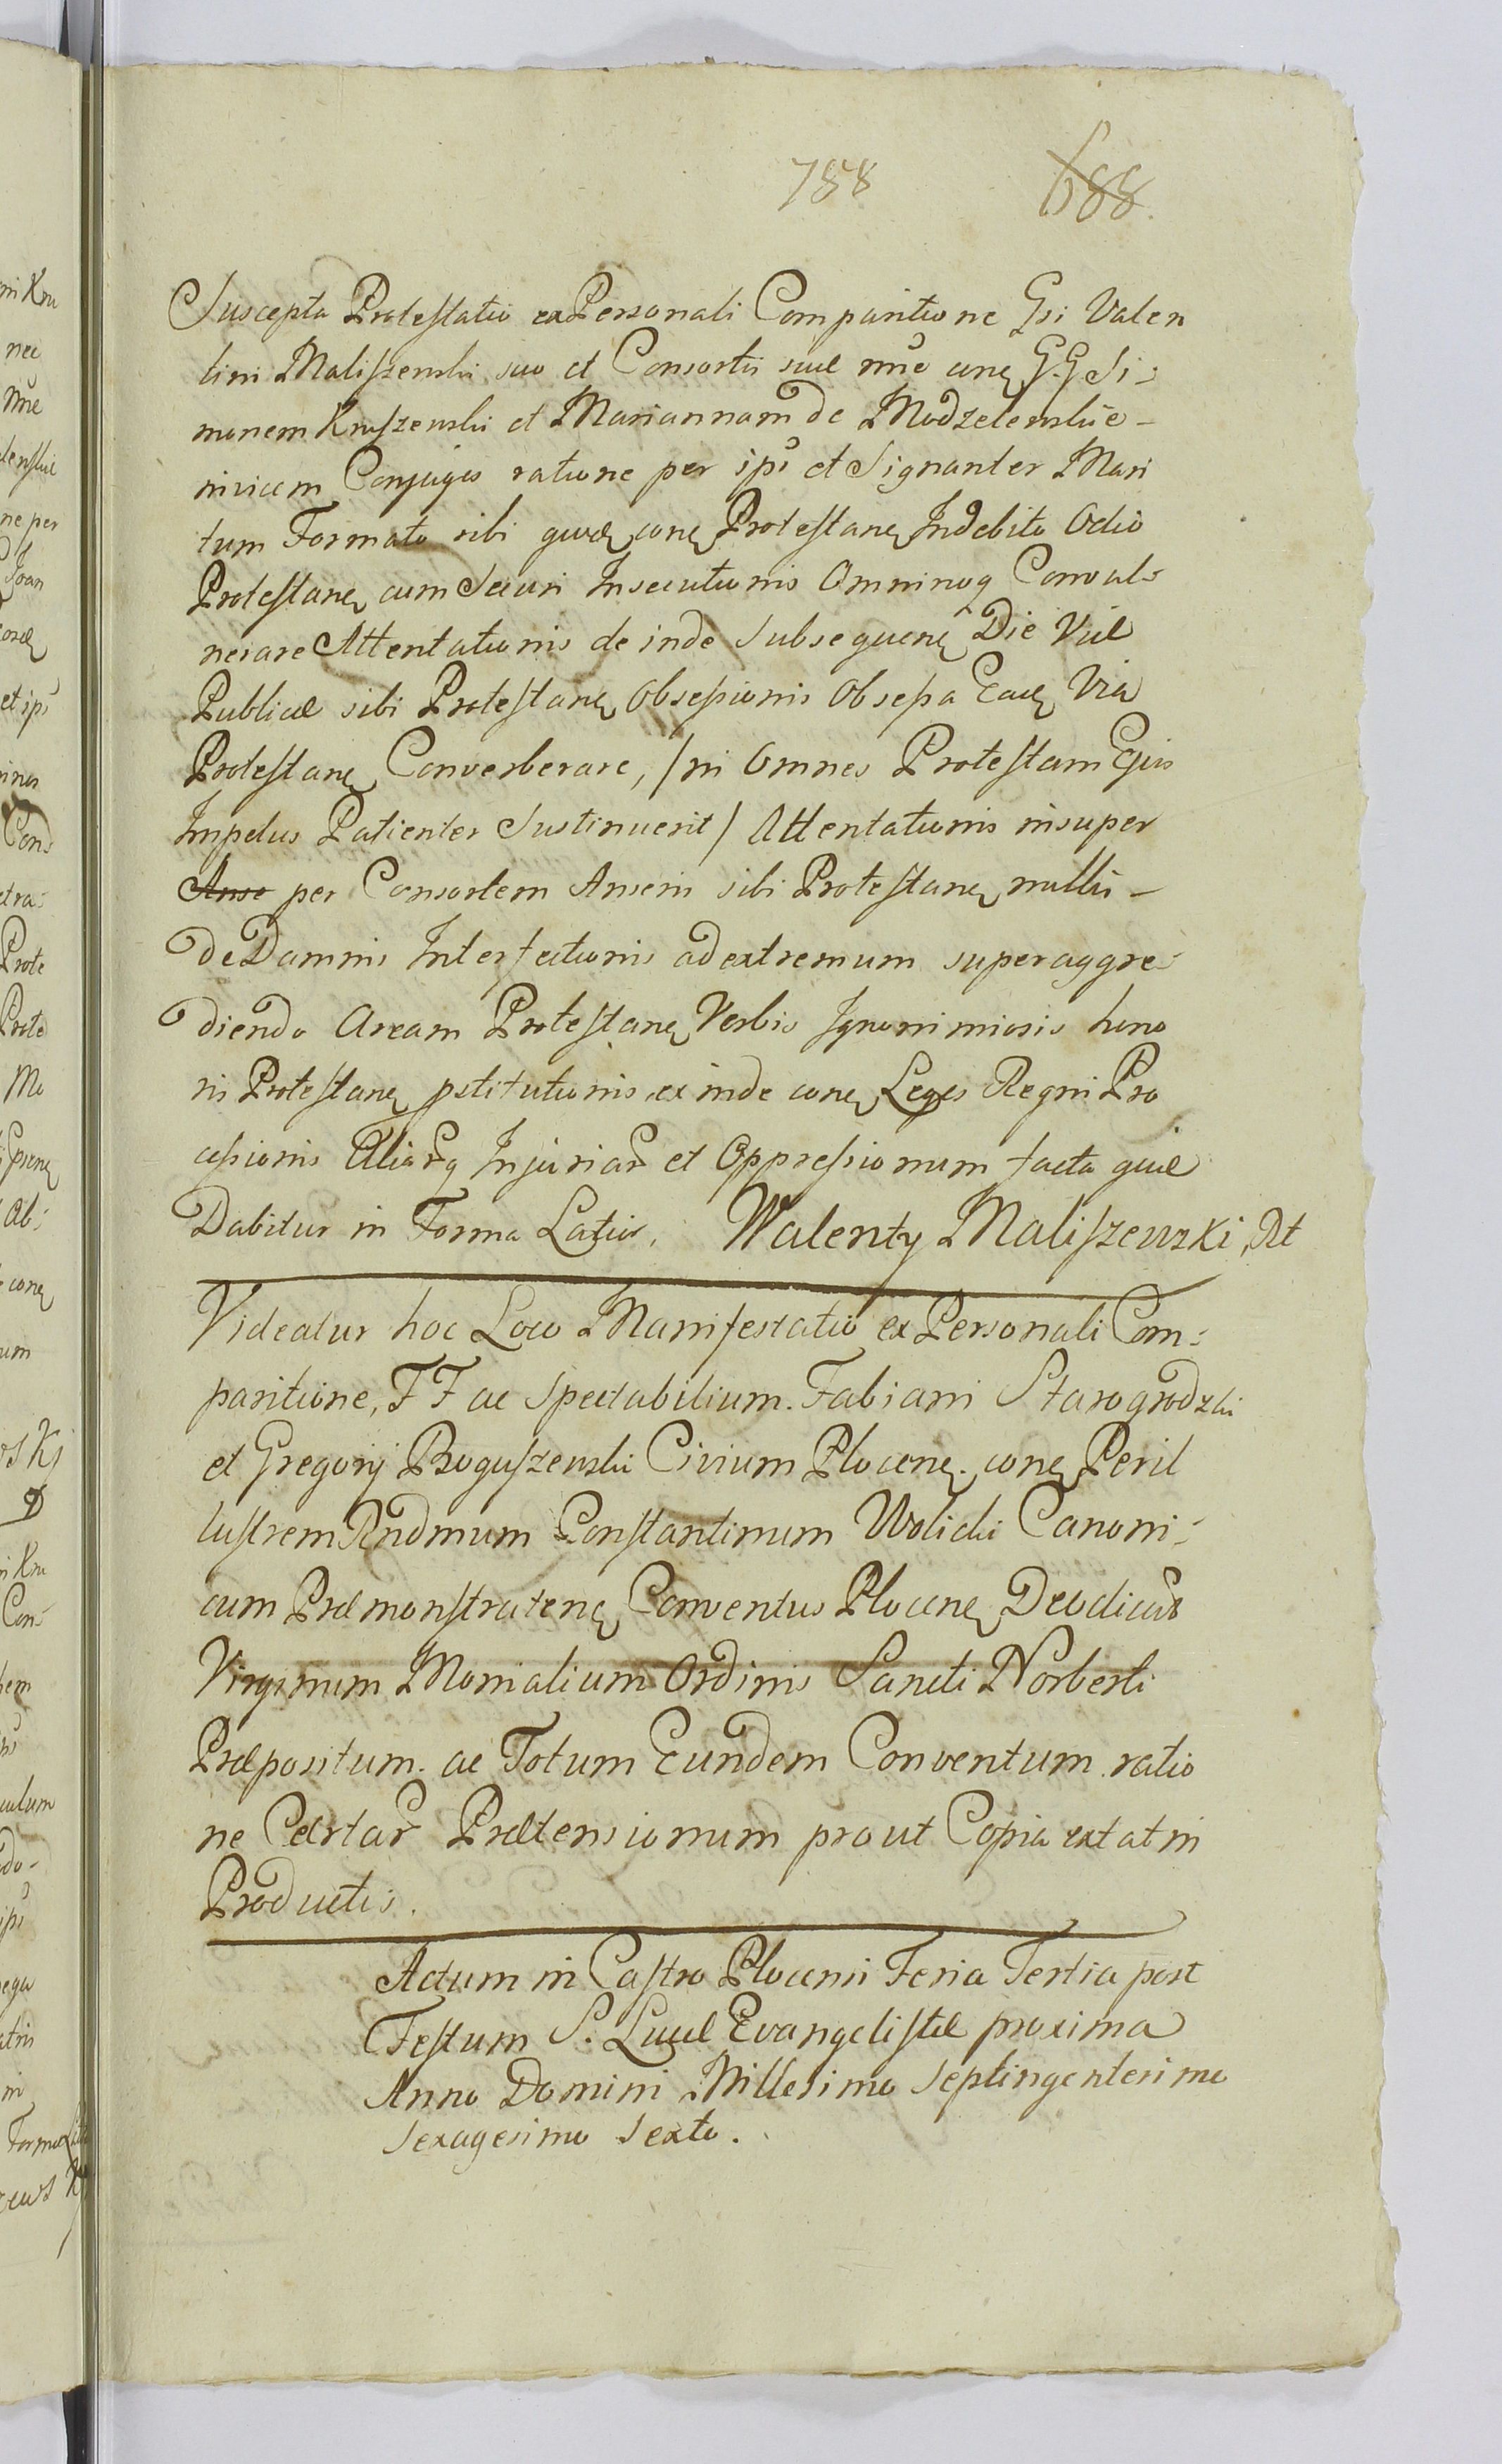 788 688.
Suscepta Protestatio ex Personali Comparitione Gsi Valen
tini Maliszewski suo et Consortis suæ nnẽ conꝫ G.G Si-
monem Kruszewski et Mariannam de Modzelewskie-
invicem Conjuges ratione per ipſ et Signanter Mari
tum Formato sibi conꝫ Protestanꝫ Indebito Odio
Protestanꝫ cum Securi Insecutionis Omninoq Convul-
nerare Attentationis de inde Subsequenꝫ Die Viæ
Publicæ sibi Protestanꝫ Obsessionis Obsessa Eaꝫ Via
Protestanꝫ Converberare, /ni Omnes Protestans Ejus
Impetus Patienter Sustinuerit/ Attentationis insuper
per Consortem Anseris sibi Protestanꝫ nullis-
de Damnis Interfectionis ad extremum superaggre-
diendo Aream Protestanꝫ Verbis Ignominiosis hono
ris Protestanꝫ pstitutionis ex inde conꝫ Leges Regni Pro
cessionis Aliarq Injuriar et Oppressionum facta quæ
Dabitur in Forma Latior. Walenty Maliszewski,
Videatur hoc Loco Manifestatio ex Personali Com-
paritione, F F ac Spectabilium. Fabiani Starogrodzki
et Gregorij Boguszewski Civium Plocenꝫ. conꝫ Peril
lustrem Rndmum Constantinum Wolicki Canoni-
cum Præmonstratenꝫ Conventus Plocenꝫ Deodicar
Virginum Monialium Ordinis Sancti Norberti
Præpositum. ac Totum Eundem Conventum ratio
ne Certar Prætensionum prout Copia extat in
Productis.
Actum in Castro Plocensi Feria Tertia post
Festum S. Lucæ Evangelistæ proxima
Anno Domini Millesimo Septingentesimo
Sexagesimo Sexto.